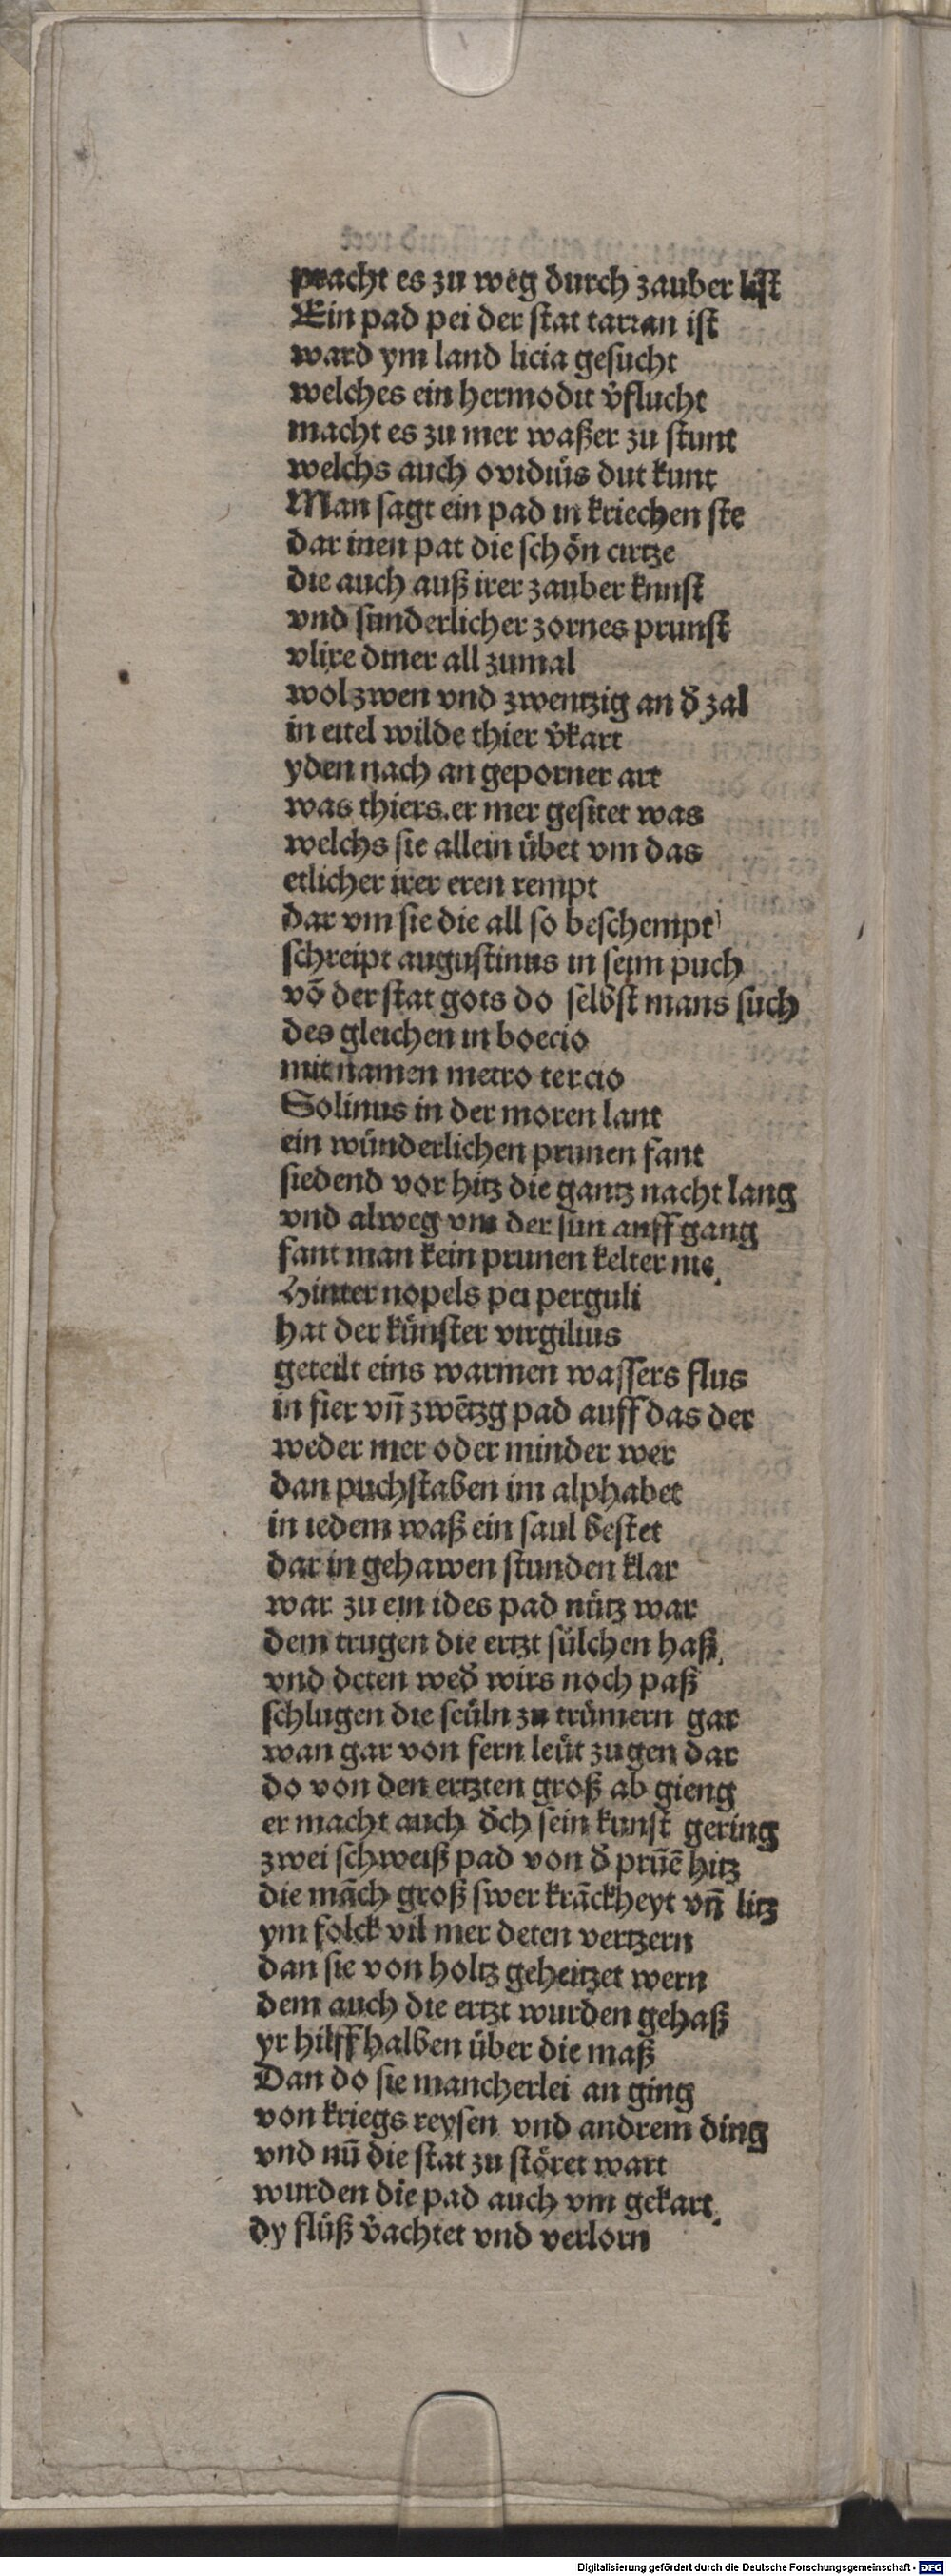 pracht es zu weg durch zauber list
Ein pad pei der stat tarran ist
ward ym land licia gesucht
welches ein hermodit v̄flucht
macht es zu mer waßer zu stunt
welchs auch ovidiüs dut kunt
Man sagt ein pad in kriechen ste
dar inen pat die schön cirtze
die auch auß irer zauber kunst
vnd sunderlicher zornes prunst
vlixe diner all zumal
wol zwen vnd zwentzig an d̄ zal
in eitel wilde thier v̄kart
yden nach an geporner art
was thiers er mer gesitet was
welchs sie allein übet vm das
etlicher irer eren rempt
dar vm sie die all so beschempt
schreipt augustinus in seim puch
vō der stat gots do selbst mans such
des gleichen in boecio
mit namen metro tercio
Solinus in der moren lant
ein wünderlichen prunen fant
siedend vor hitz die gantz nacht lang
vnd alweg vm der sun auff gang
fant man kein prunen kelter nie
Hinter nopels pei perguli
hat der künster virgilius
geteilt eins warmen wassers flus
in fier vn̄ zwētzg pad auff das der
weder mer oder minder wer
dan puchstaben im alphabet
in iedem waß ein saul bestet
dar in gehawen stunden klar
war zu ein ides pad nütz war
dem trugen die ertzt sülchen haß
vnd deten wed̄ wirs noch paß
schlugen die seüln zu trümern gar
wan gar von fern leüt zugen dar
do von den ertzten groß ab gieng
er macht auch d̄ch sein kunst gering
zwei schweiß pad von d̄ prūē hitz
die māch groß swer krāckheyt vn̄ litz
ym folck vil mer deten vertzern
dan sie von holtz geheitzet wern
dem auch die ertzt wurden gehaß
yr hilff halben über die maß
Dan do sie mancherlei an ging
von kriegs reysen vnd andrem ding
vnd nū die stat zu störet wart
wurden die pad auch vm gekart
dy flüß v̄achtet vnd verlorn
Digitalisierung gefördert durch die Deutsche Forschungsgemeinschaft - DFG